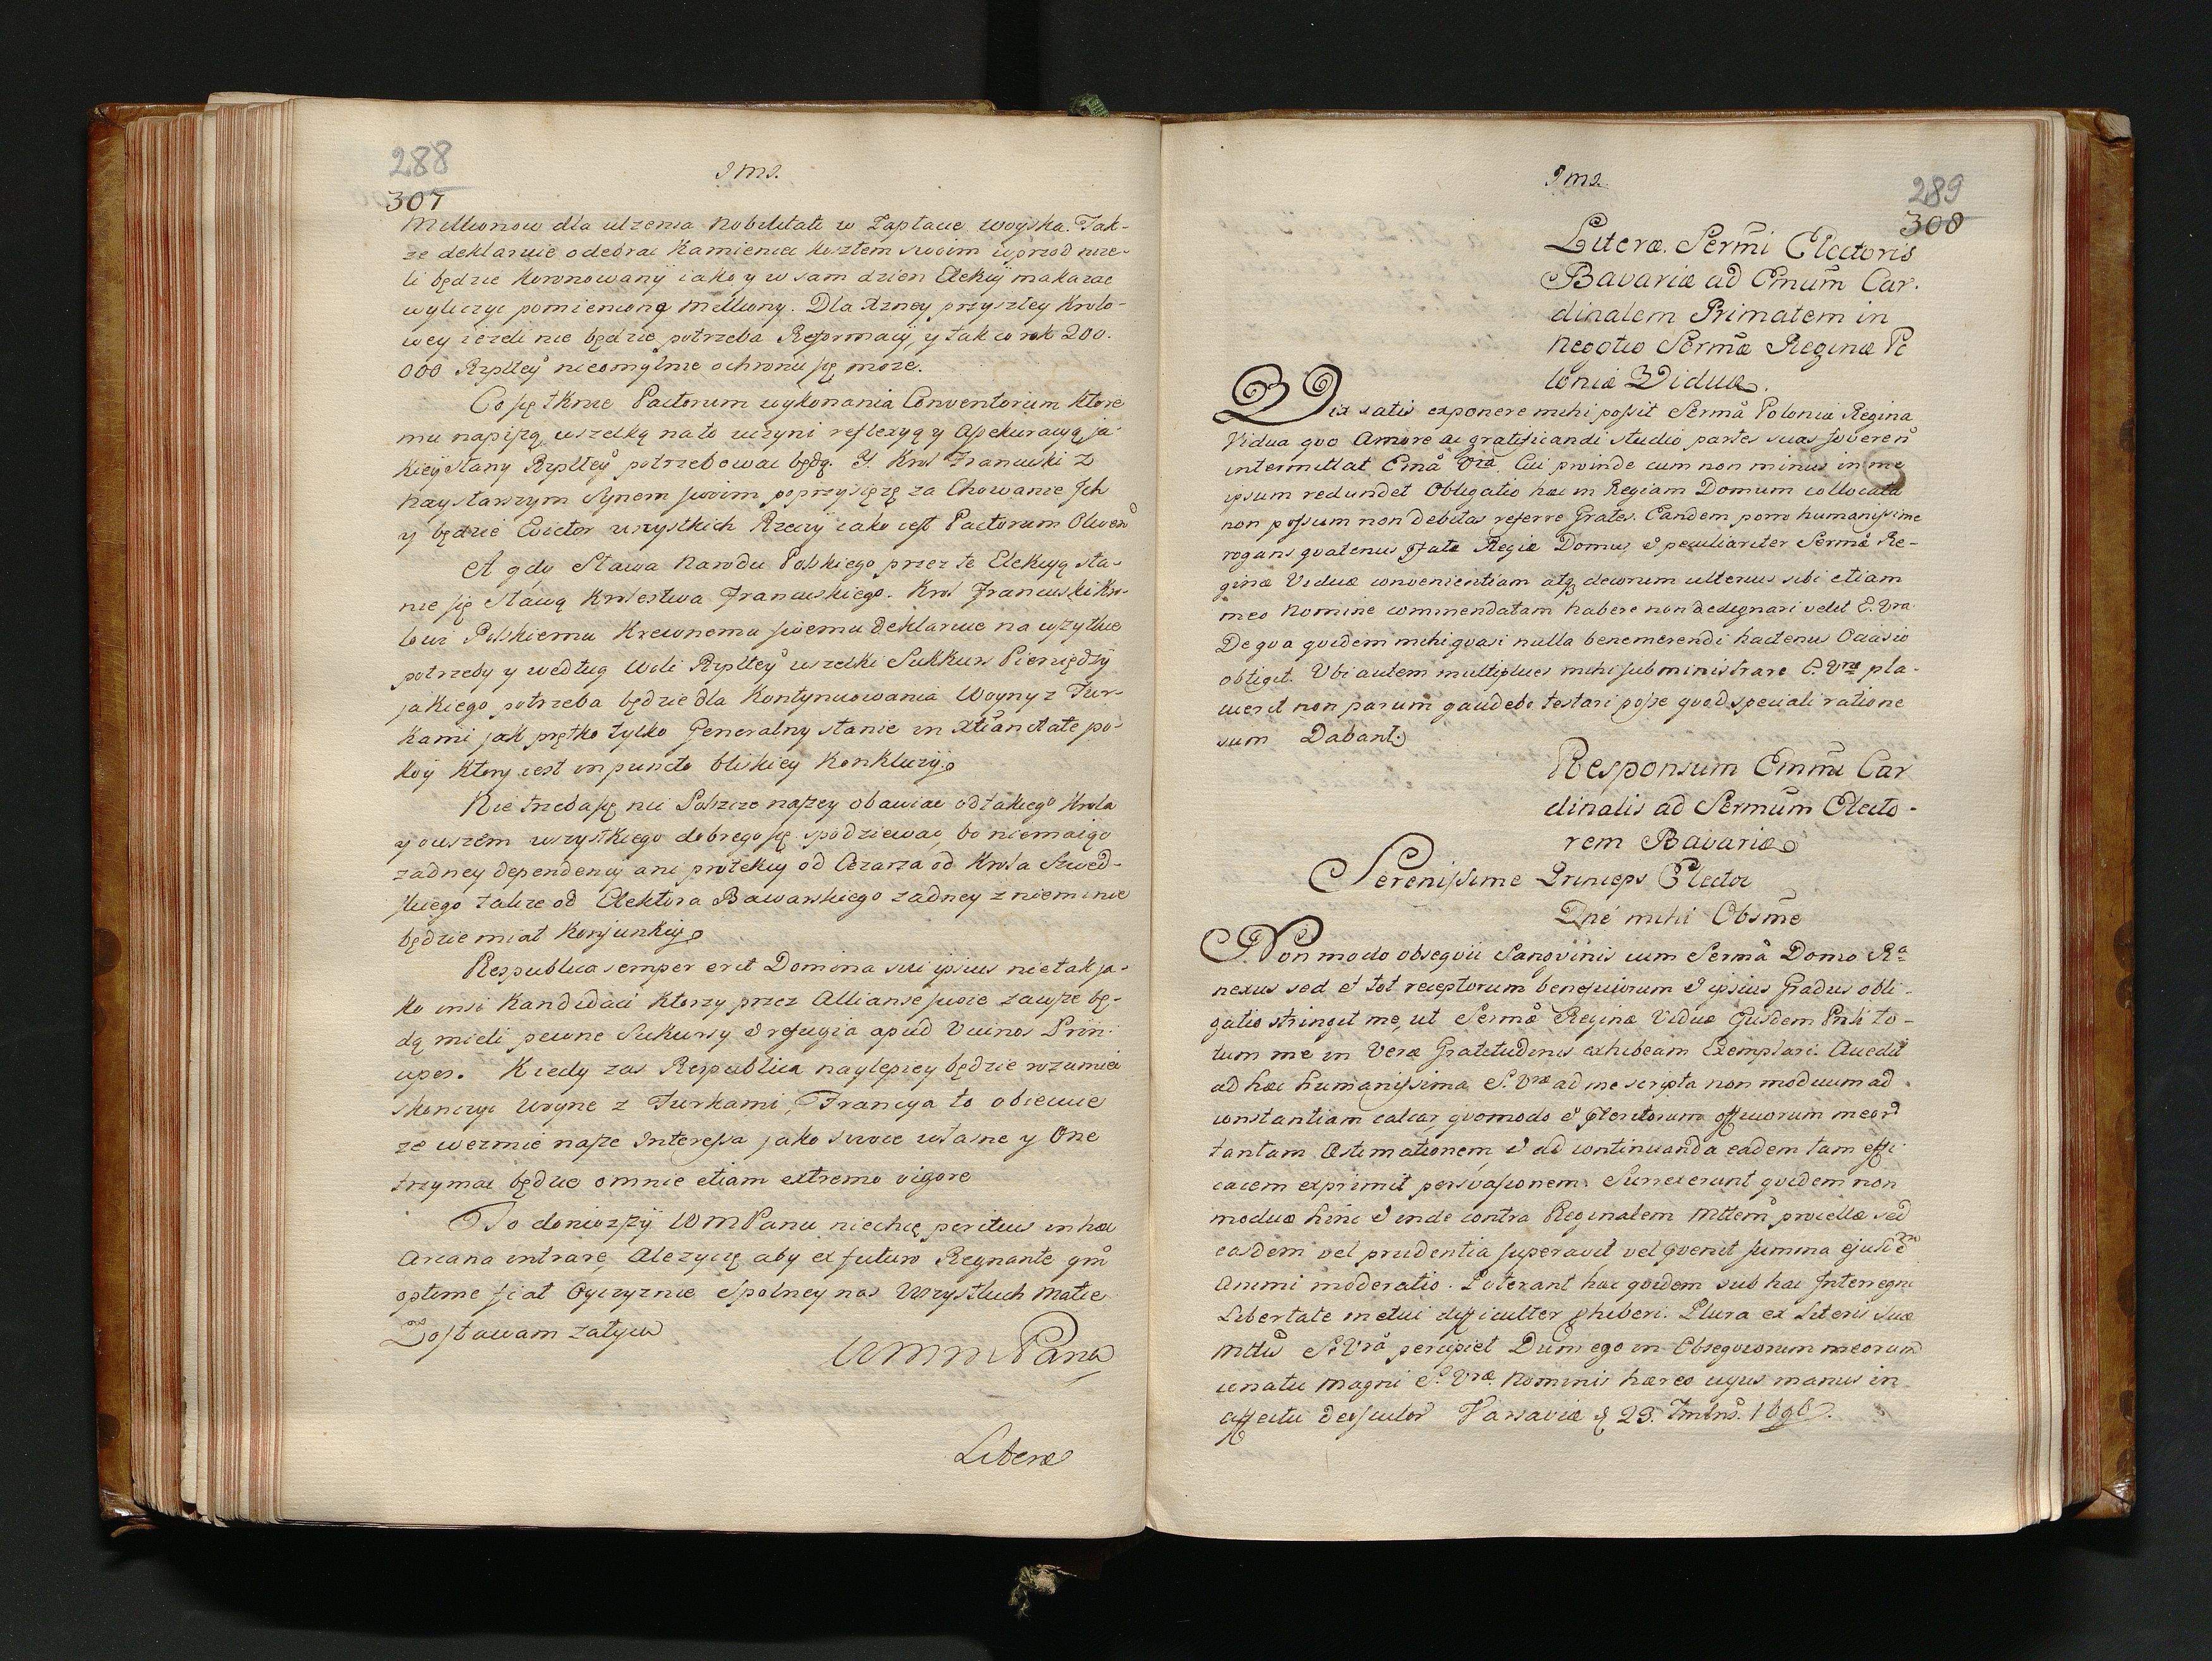 288
307
Millionow dla ulzenia Nobilitati w Zaplacie woyska. Tak-
ze deklaruie odebrac Kamieniec kosztem swoim wprzod nize-
li będzie koronowany iako y w sam dzien Elekcij ma kazac
wyliczyc pomienioną Milliony. Dla Xzney przyszley Krolo-
wey iezeli nie będzie potrzeba Reformacij, y tak co rok 200.
000 Rzpltey nieomylnie ochronic się moze.
Co się tknie Pactorum wykonania Conventorum ktore
mu napiszą wszelką na to uczyni reflexyą y Assekuracyą ja-
kiey Stany Rzpltey potrzebowac będą. Y. Krol Francuski z
Naystarszym Synem swoim poprzysięzę za Chowanie Ich
y będzie Evictor wszystkich Rzeczij iako iest Pactorum Oliven
A gdy Sława Narodu Polskiego przez te Elekcyą sta-
nie się Sławą Krolestwa Francuskiego. Krol Francuski Kro-
lowi Polskiemu Krewnemu swemu deklaruie na wszytkie
potrzeby y według Woli Rzpltey wszelki Sukkurs Pieniędzy
jakiego potrzeba będzie dla Kontynuowania Woyny z Tur-
kami jak prętko tylko Generalny stanie in Xtianitate po-
kóy ktory iest in puncto bliskiey Konkluzij
Nie trzeba się nic Polszcze naszey obawiac od takiego Krola
y owszem wszystkiego dobrego się spodziewac, bo nie maiąc
zadney dependencij ani protekcij od Cezarza od Krola Szwed-
skiego takze od Elektora Bawarskiego zadney z niemi nie
będzie miał Konjunkcij
Respublica semper erit Domina sui ipsius nie tak ja-
ko insi Kandidaci ktorzy przez Allianse swoie zawsze bę-
dą mieli pewne Sukursy & refugia apud Vicinos Prin-
cipes. Kiedy zas Respublica naylepiey będzie rozumiec
skonczyc woyne z Turkami, Francya to obiecuie
ze wezmie nasze Interessa jako swoie własne y One
trzymac będzie omnie etiam extremo vigore
To donioszszy WMPanu niechcę penitius in hac
Arcana intrare, Ale zyczę aby ex futuro Regnante qm
optime fiat Oyczyznie Spolney nas Wszystkich Matce
Zostawam zatym
WMM Pana
Literæ
289
308
Literæ Sermi Electoris
Bavariæ ad Emum Car-
dinalem Primatem in
Negotio Sermæ Reginæ Po
loniæ Viduæ.
Vix satis exponere mihi possit Serma Poloniæ Regina
Vidua quo Amore ac gratificandi studio partes suas fovere n
intermittat Ema Vra. Cui proinde cum non minus in me
ipsum redundet Obligatio hæc in Regiam Domum collocata
non possum non debitas referre Grates. Eandem porro humanissime
rogans quatenus Regiæ Domus, & peculiariter Sermæ Re-
ginæ Viduæ convenientiam atq decorum ulterius sibi etiam
meo Nomine commendatam habere non dedignari velit E. Vra
De qua quidem mihi quasi nulla benemerendi hactenus Occasio
obtigit. Ubi autem multiplices mihi subministrare E. Vræ pla-
cuerit non parum gaudebo testari posse quod speciali ratione
sum Dabant
Responsum Emmi Car
dinalis ad Sermum Electo-
rem Bavariæ
Serenissime Princeps Elector
Dne mihi Obsme
Non modo obsequii Sanguinis cum Serma Domo Ra
nexus sed et tot receptorum beneficiorum & ipsius Gradus obli-
gatio stringit me, ut Sermæ Reginæ Viduæ Ejusdem to-
tum me in Veræ Gratitudinis exhibeam Exemplari. Accedit
ad hæc humanissima S. Vræ ad me scripta non modicum ad
constantiam calcar, quomodo & officiorum meor
tantam Æstimationem, & ad continuanda eadem tam effi-
cacem exprimit persvasionem. Surrexerunt quidem non
modicæ hinc & inde contra Reginalem Mttem procellæ sed
easdem vel prudentia superavit vel evenit summa ejusdem
Animi moderatio. Poterant hæc quidem sub hac Interregni
Libertate metui difficulter phiberi. Plura ex Literis suæ
Mttis S. Vra percipiet Dum ego in Obsequiorum meorum
conatu magni S. Vræ Nominis hæreo cujus manus in
affectu deosculor Varsaviæ d 23.